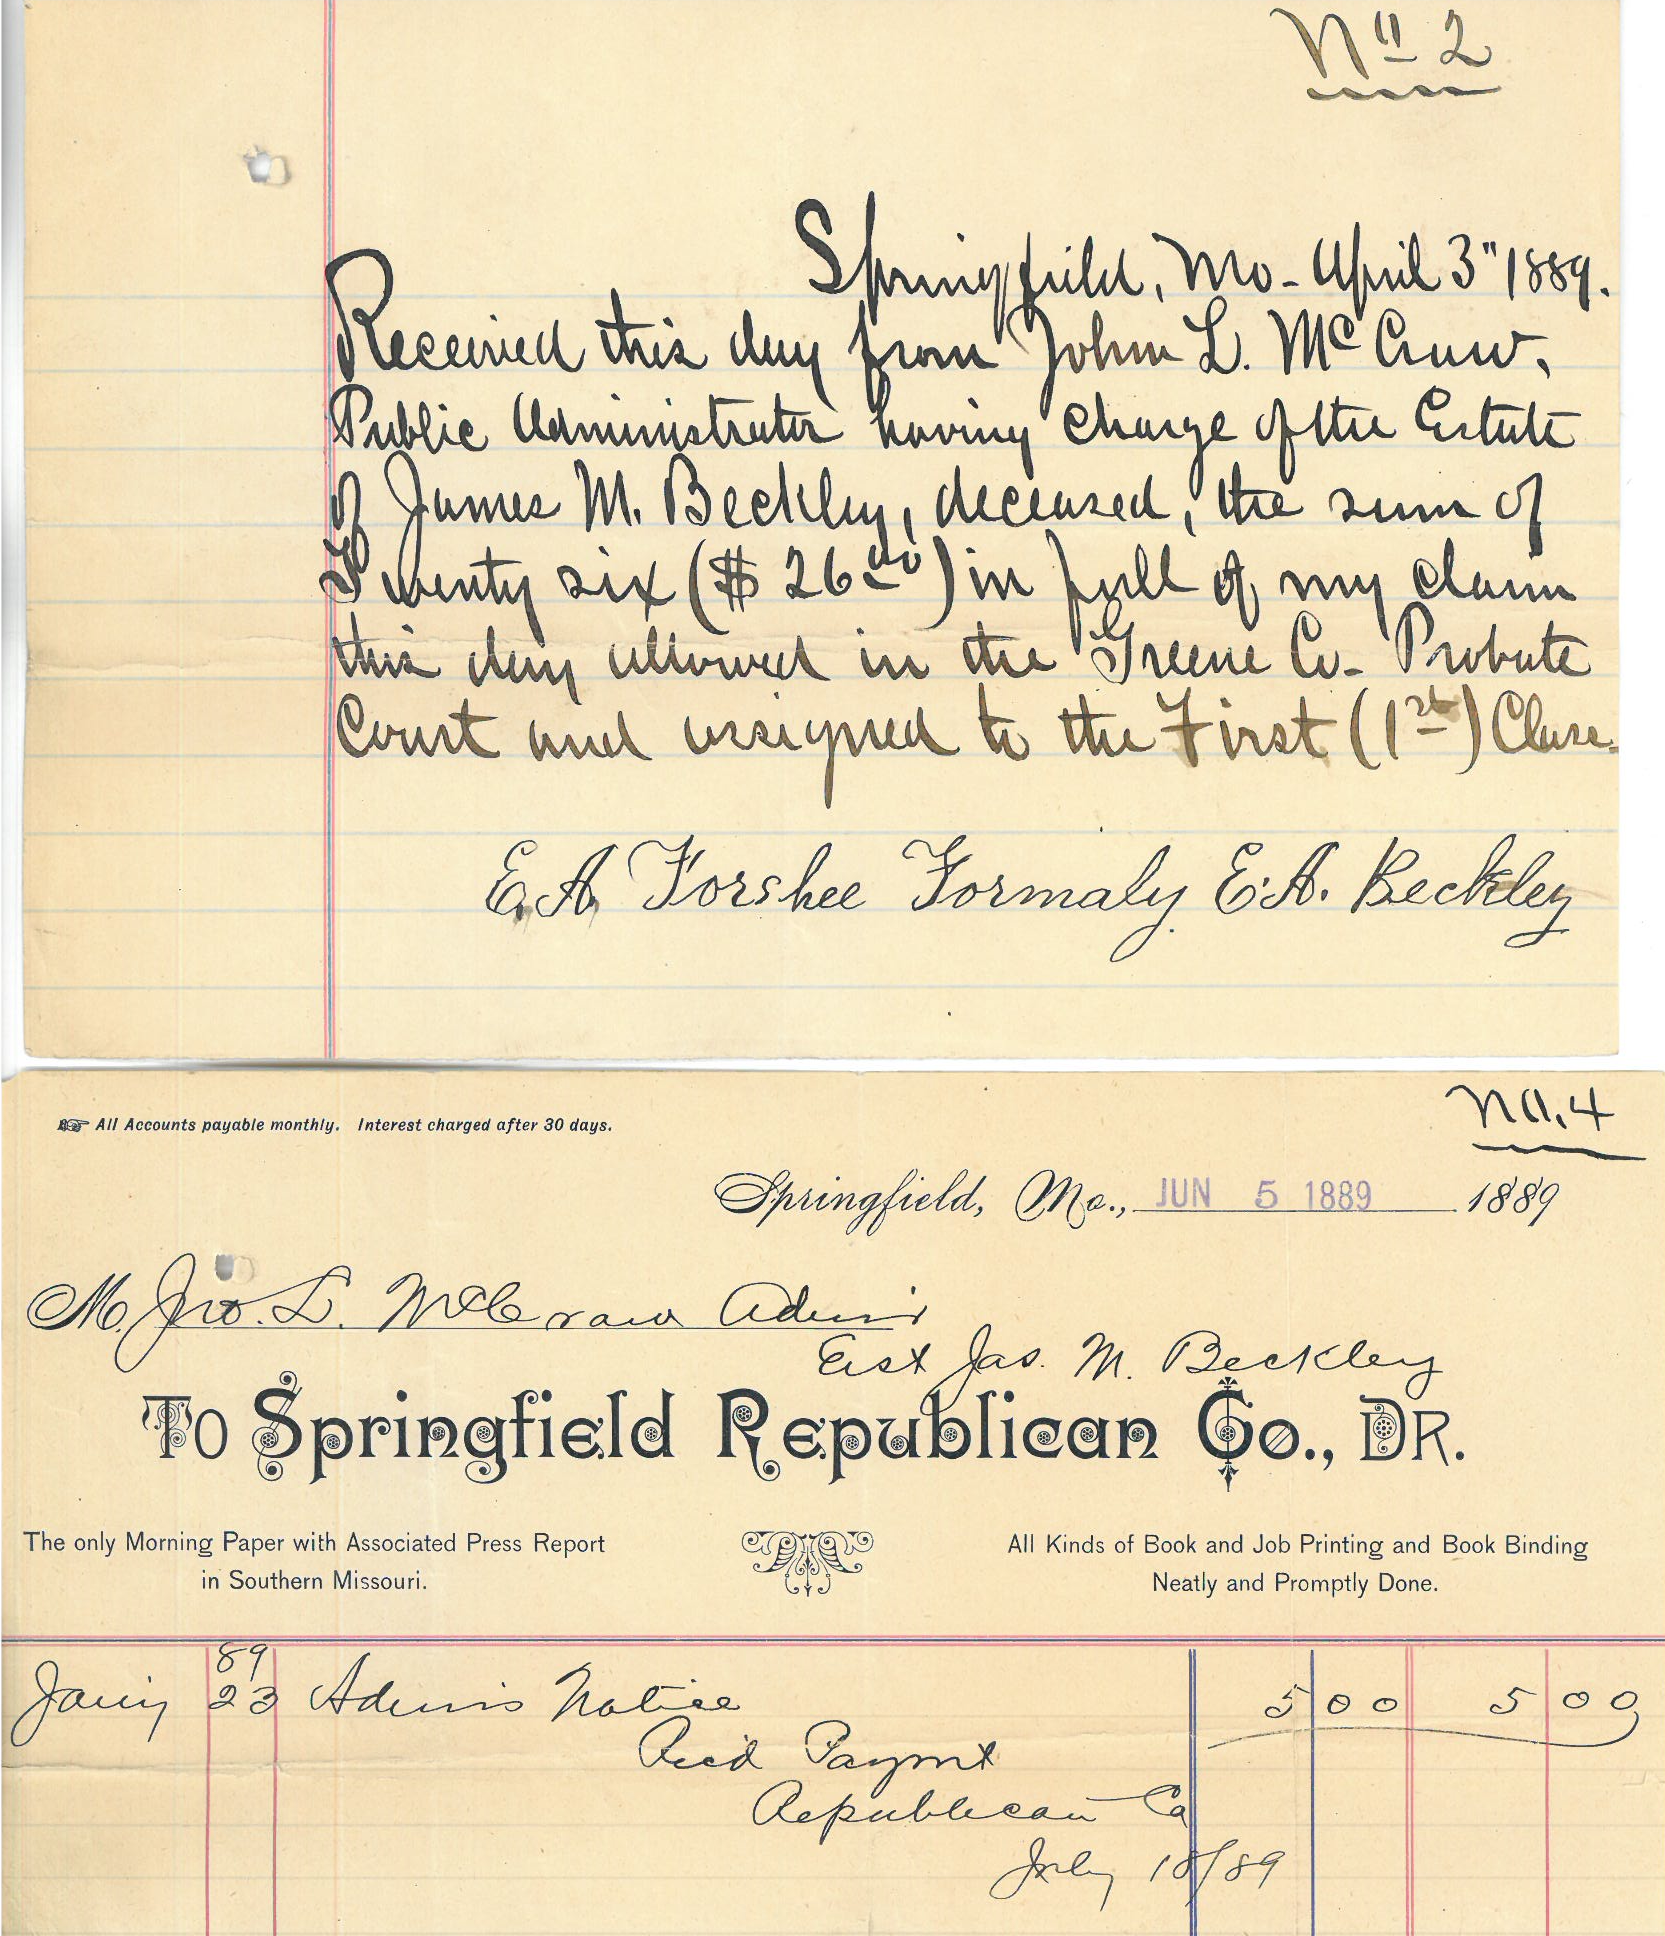 No 2
Springfield, Mo - April 3" 1889.
Received this day from John L. McCraw,
Public Administrator having charge of the Estate
of James M. Beckley, deceased, the sum of
Twenty six ($ 26 00) in full of my claim
this day allowed in the Greene Co- Probate
Court and assigned to the First (1st) Class.
E. A. Forshee Formaly E. A. Beckley
All Accounts payable monthly. Interest charged after 30 days.
No. 4
Springfield, Mo., JUN 5 1889 1889
M. Jno. L. McCraw Admr
Est Jas. M. Beckley
To Springfield Republican Co., DR.
The only Morning Paper with Associated Press Report
in Southern Missouri.
All Kinds of Book and Job Printing and Book Binding
Neatly and Promptly Done.
89
Jany 23 Admrs Notice 5 00 5 00
Recd Paymt
Republican Co
July 18/89